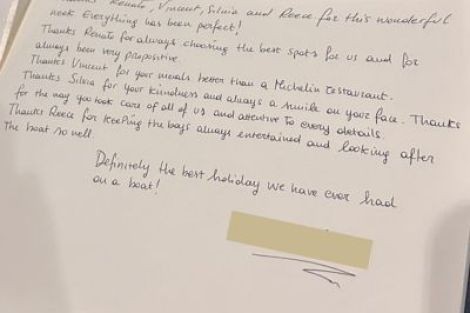 Thanks Renato, Vincent, Silvia and Reece for this wonderful
week. Everything has been perfect!
Thanks Renato for always choosing the best spots for us and for
always been very propositive.
Thanks Vincent for your meals better than a Michelin restaurant.
Thanks Silvia for your kindness and always a smile on your face. Thanks
for the way you took care of all of us and attentive to every details.
Thanks Reece for keeping the boys always entertained and looking after
The boat so well.
Definitely the best holiday we have ever had
on a boat!